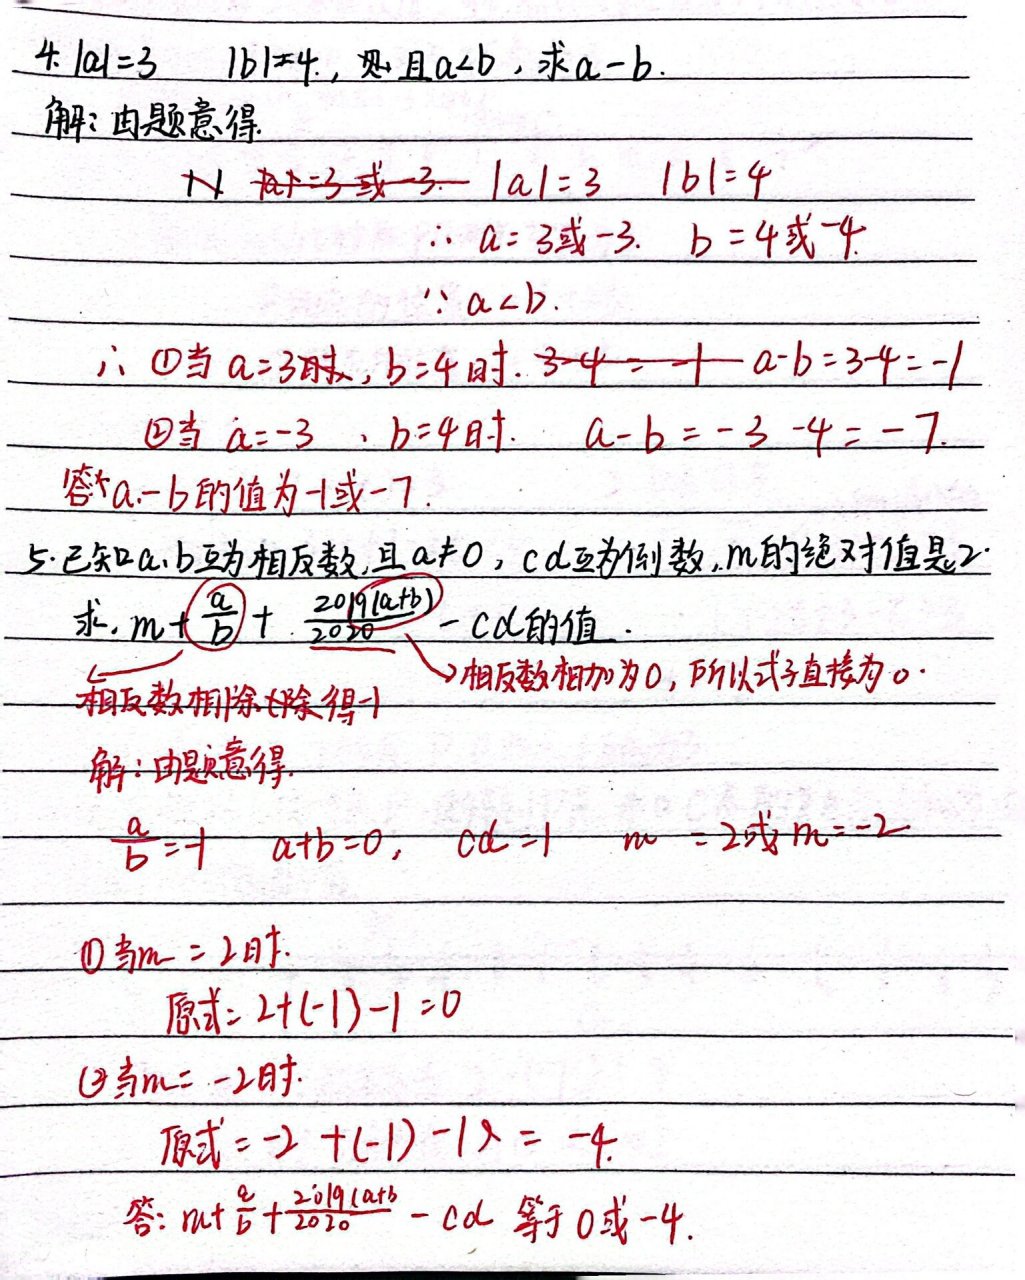 4. |a|=3 |b|=4, 且a<b, 求a-b.
解: 由题意得.
|a|=3 |b|=4
∴ a=3或-3. b=4或-4.
∵ a<b.
∴ ①当a=3时, b=4时. 3-4=-1 a-b=3-4=-1
②当a=-3, b=4时. a-b=-3-4=-7.
答: a-b的值为-1或-7.
5.已知a.b互为相反数,且a≠0, cd互为倒数,m的绝对值是2.
求. m+a/b+2019(a+b)/2020-cd的值.
相反数相加为0, 所以式子直接为0.
相反数相除得-1
解: 由题意得.
a/b=-1 a+b=0, cd=1 m=2或m=-2
①当m=2时.
原式=2+(-1)-1=0
②当m=-2时.
原式=-2+(-1)-1=-4.
答: m+a/b+2019(a+b/2020-cd 等于0或-4.